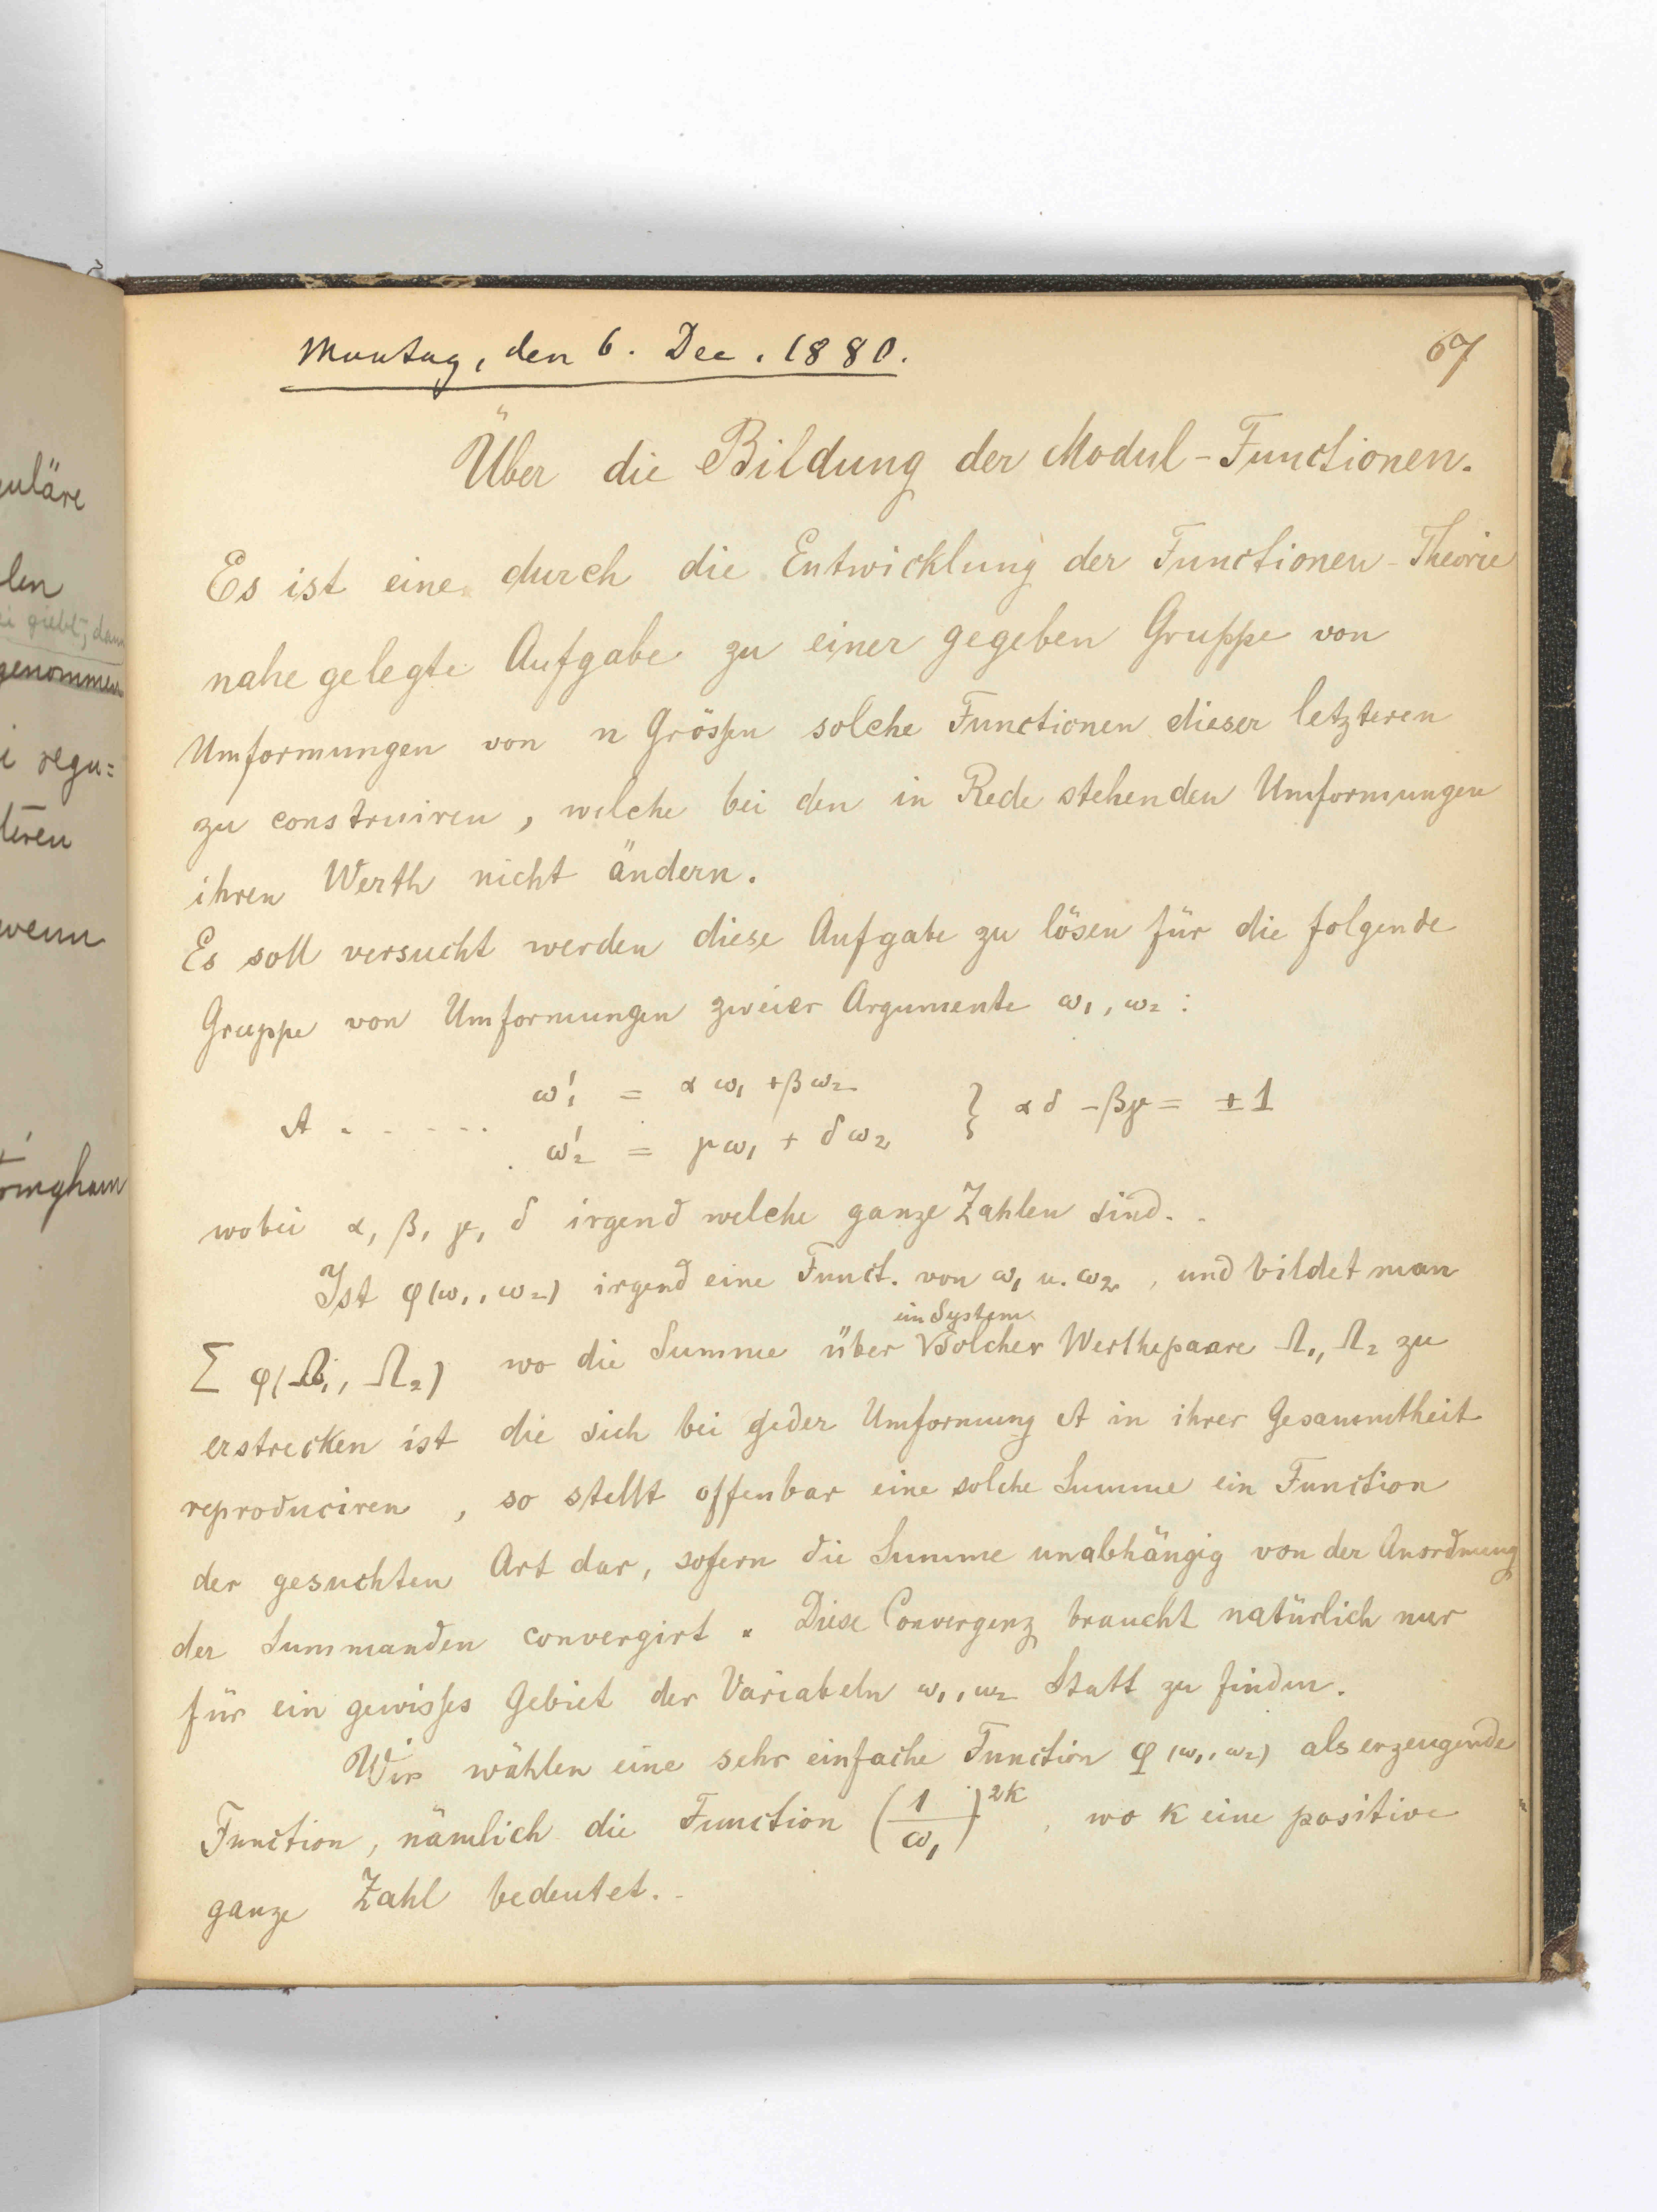 uläre
len
ei giebt, dann
genommen
i regu=
teren
wenn
ringham
Montag, den 6. Dec. 1880.
67
Über die Bildung der Modul-Functionen.
Es ist eine durch die Entwicklung der Functionen-Theorie
nahe gelegte Aufgabe zu einer gegeben Gruppe von
Umformungen von n Größen solche Functionen dieser letzteren
zu construiren, welche bei den in Rede stehenden Umformungen
ihren Werth nicht ändern.
Es soll versucht werden diese Aufgabe zu lösen für die folgende
Gruppe von Umformungen zweier Argumente ω₁, ω₂ :
ω₁' = α ω₁ + β ω₂
A . . . . . } α δ - β γ = ± 1
ω₂' = γ ω₁ + δ ω₂
wobei α, β, γ, δ irgend welche ganze Zahlen sind.
Ist φ(ω₁, ω₂) irgend eine Funct. von ω₁ u. ω₂, und bildet man
ein System
Σ φ(Ω₁, Ω₂) wo die Summe über √solcher Werthepaare Ω₁, Ω₂ zu
erstrecken ist die sich bei jeder Umformung A in ihrer Gesammtheit
reproduciren, so stellt offenbar eine solche Summe ein Function
der gesuchten Art dar, sofern die Summe unabhängig von der Anordnung
der Summanden convergirt. Diese Convergenz braucht natürlich nur
für ein gewisses Gebiet der Variabeln ω₁, ω₂ Statt zu finden.
Wir wählen eine sehr einfache Function φ(ω₁, ω₂) als erzeugende
Function, nämlich die Function (1/ω₁)^2k, wo k eine positive
ganze Zahl bedeutet.